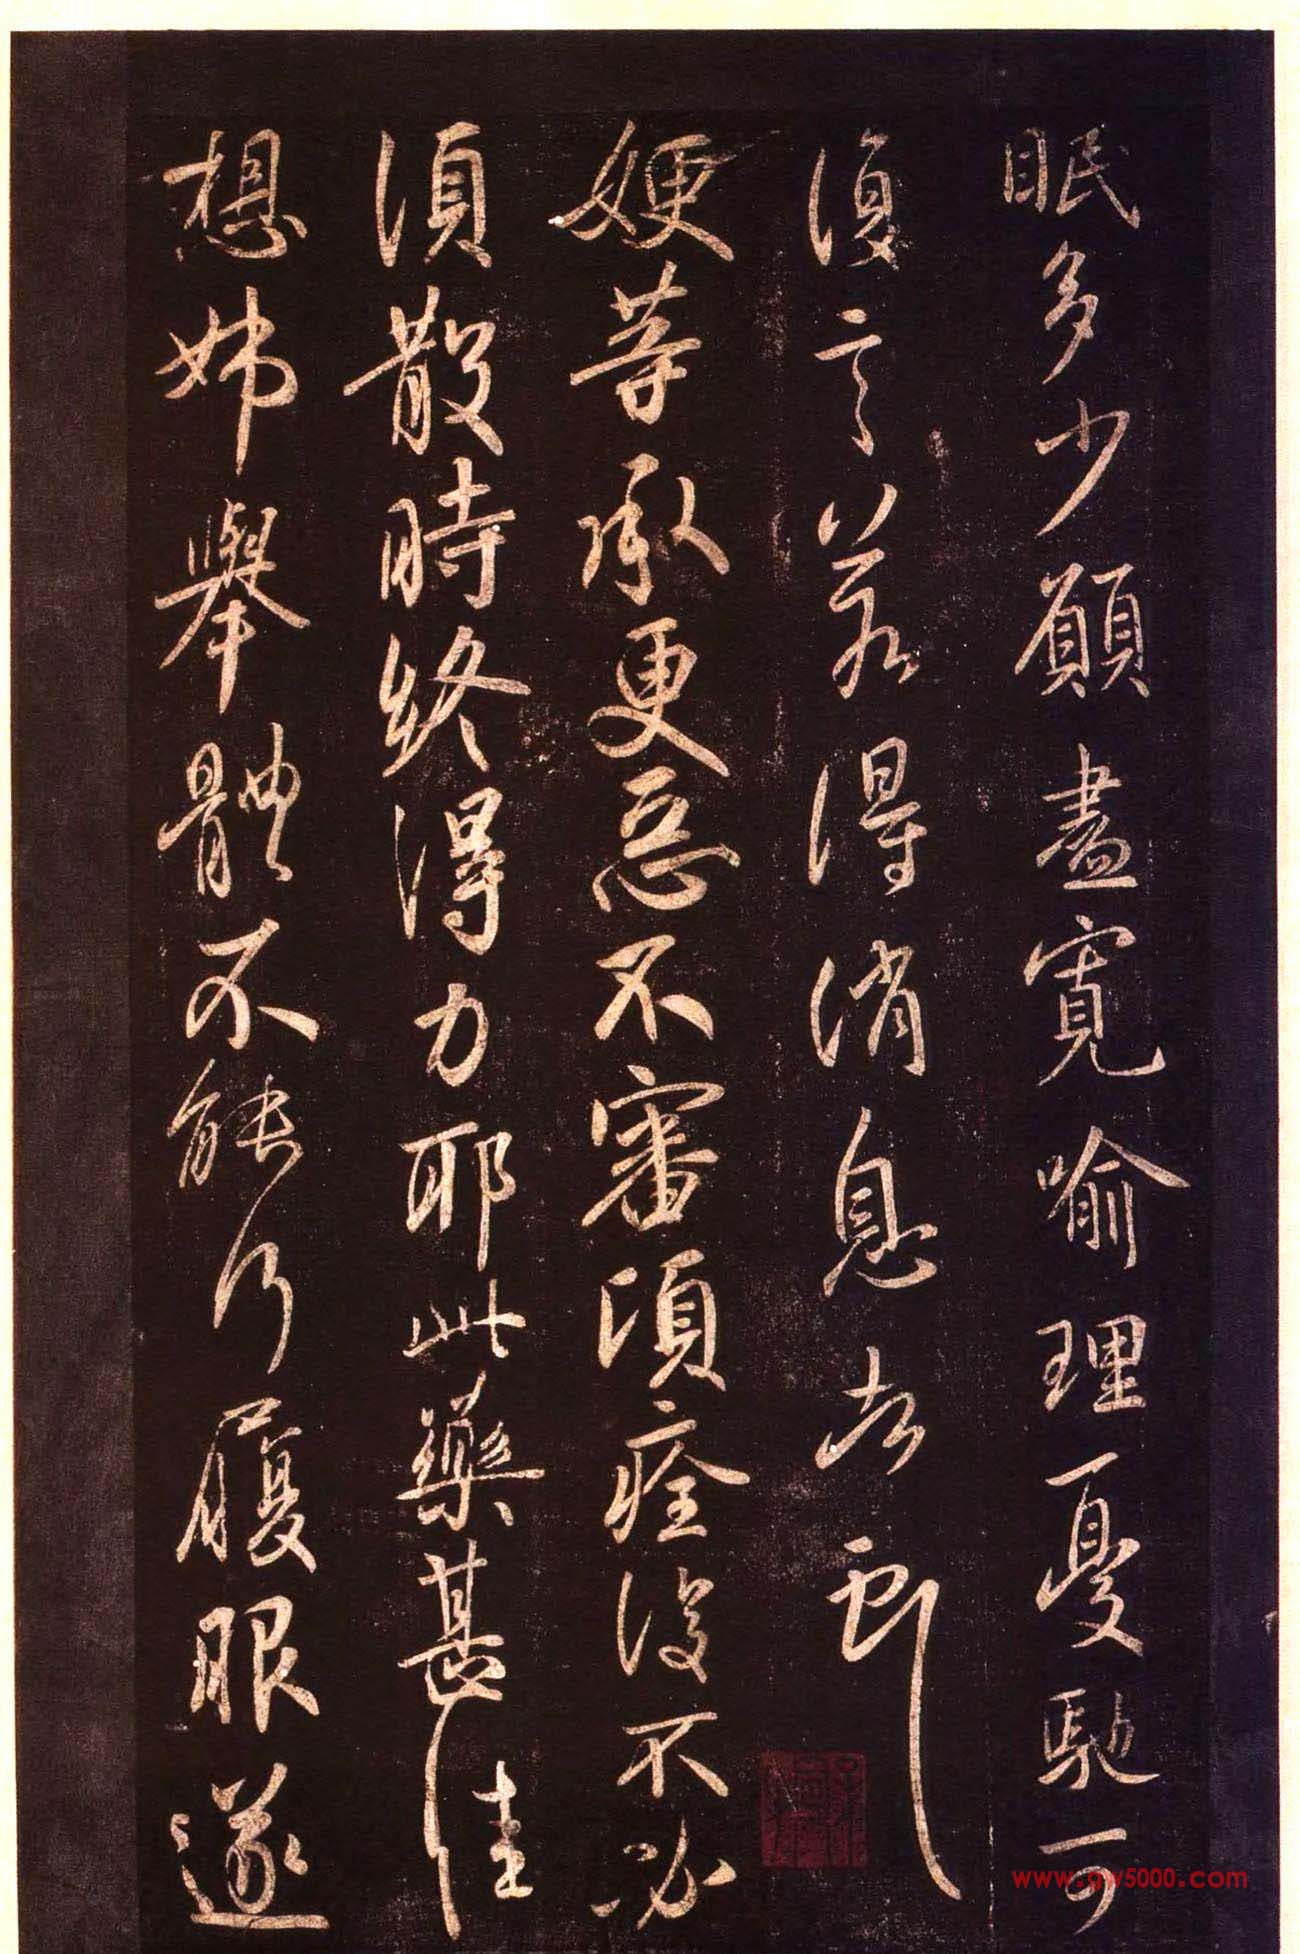 眠多少願盡寬喻理憂馳可
復言若得消息告耶
㛐等承更惡不審須痊復不必
須散時終得力耶此藥甚佳
想姊舉體不能行履眼遂
www.gw5000.com